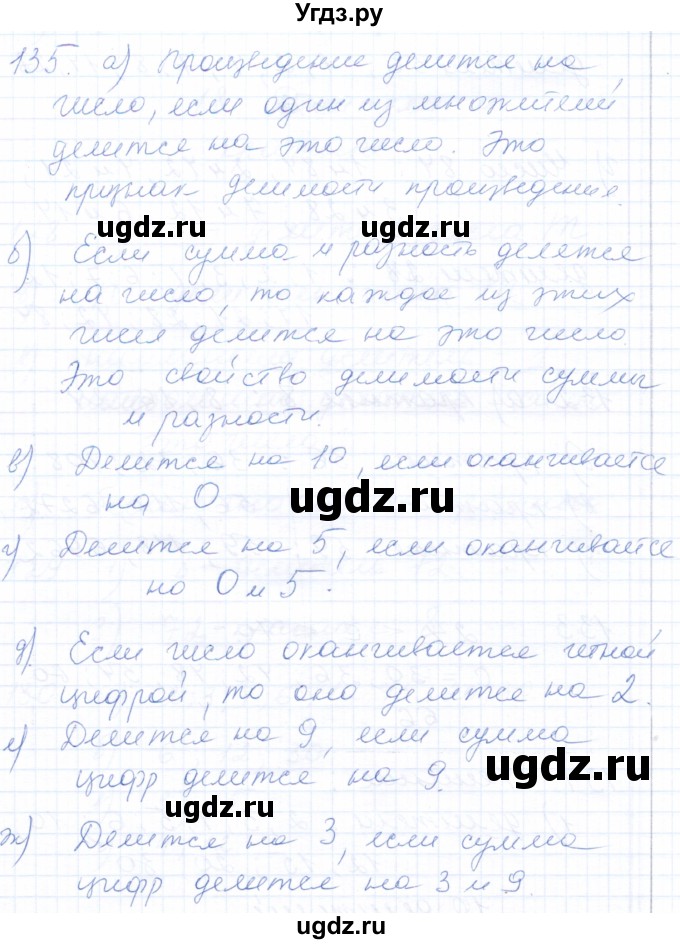 Угдз.ру
135. а) Произведение делится на
число, если один из множителей
делится на это число. Это
признак делимости произведения.
ugdz.ru ugdz.ru
б) Если сумма и разность делятся
на число, то каждое из этих
чисел делится на это число.
Это свойство делимости суммы
и разности.
в) Делится на 10, если оканчивается
на 0
ugdz.ru
г) Делится на 5, если оканчивается
на 0 и 5.
д). Если число оканчивается чётной
цифрой, то оно делится на 2.
е) Делится на 9, если сумма
цифр делится на 9.
ugdz.ru
ugdz.ru
ж) Делится на 3, если сумма
цифр делится на 3 и 9.
ugdz.ru